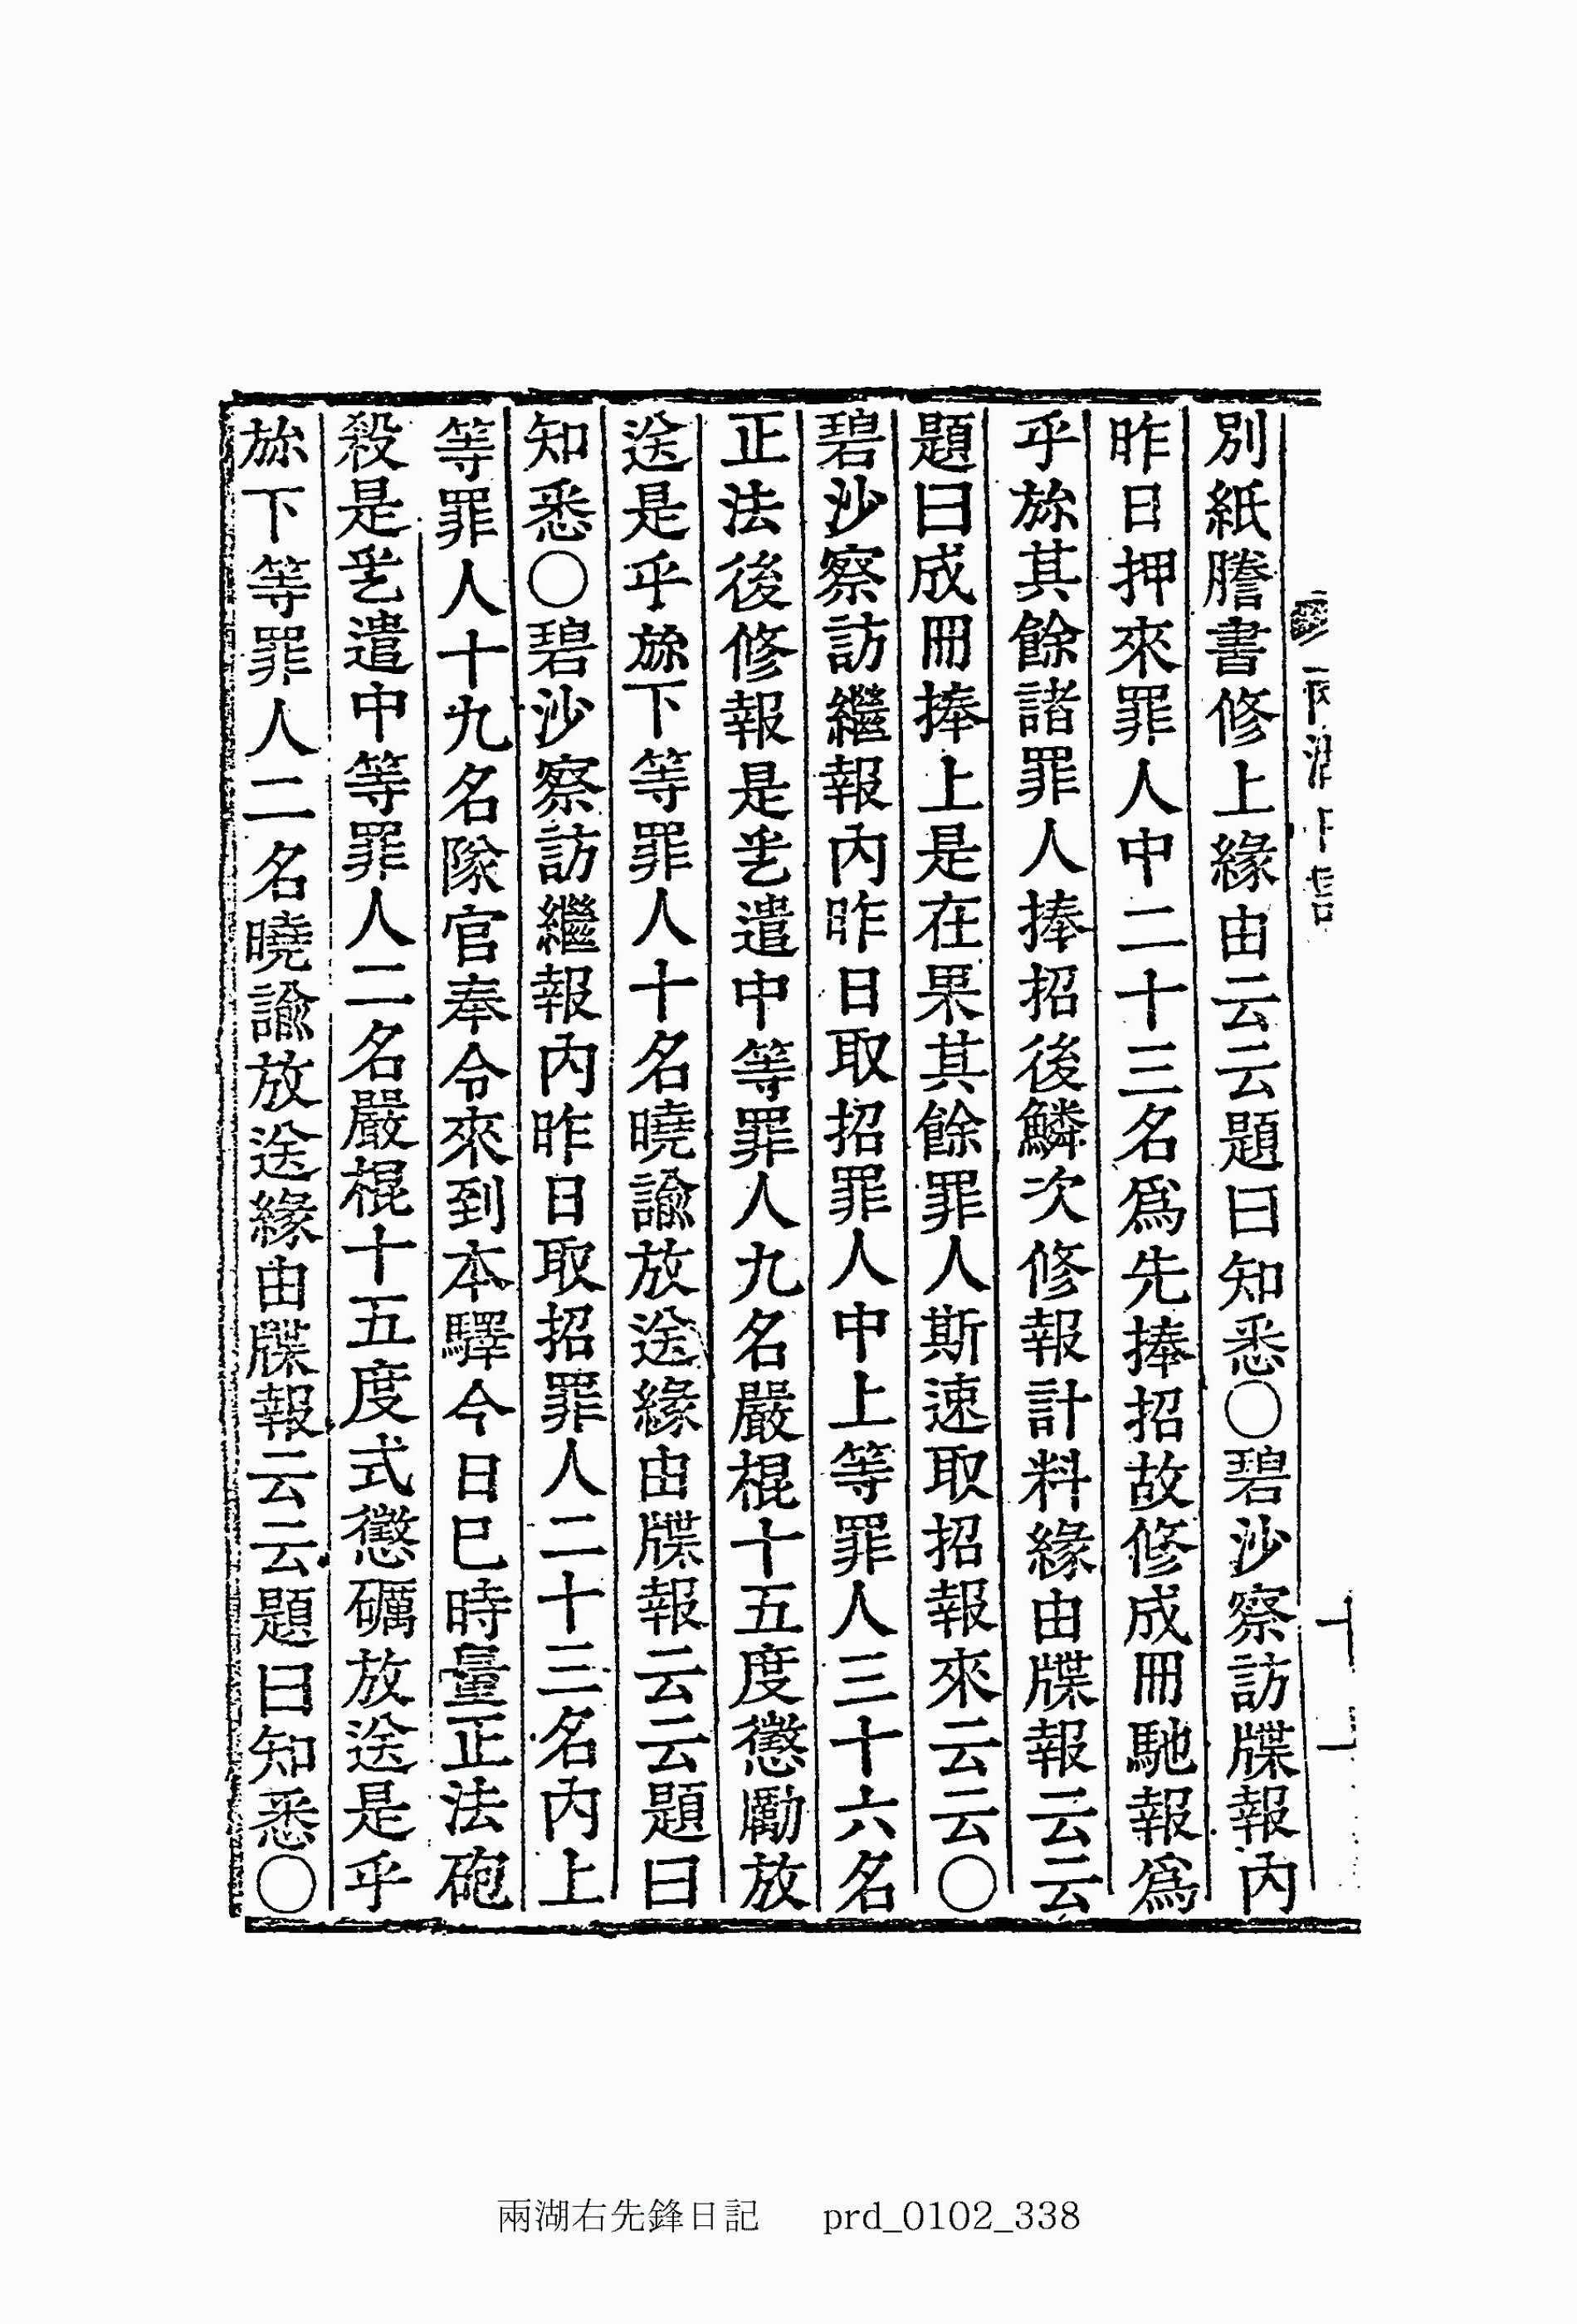 別紙謄書修上緣由云云題曰知悉〇碧沙察訪牒報內
昨日押來罪人中二十三名爲先捧招故修成冊馳報爲
乎旀其餘諸罪人捧招後鱗次修報計料緣由牒報云云
題曰成冊捧上是在果其餘罪人斯速取招報來云云〇
碧沙察訪繼報內昨日取招罪人中上等罪人三十六名
正法後修報是乎遣中等罪人九名嚴棍十五度懲勵放
送是乎旀下等罪人十名曉諭放送緣由牒報云云題曰
知悉〇碧沙察訪繼報內昨日取招罪人二十三名內上
等罪人十九名隊官奉令來到本驛今日巳時量正法砲
殺是乎遣中等罪人二名嚴棍十五度式懲礪放送是乎
旀下等罪人二名曉諭放送緣由牒報云云題曰知悉〇
兩湖右先鋒日記 prd_0102_338